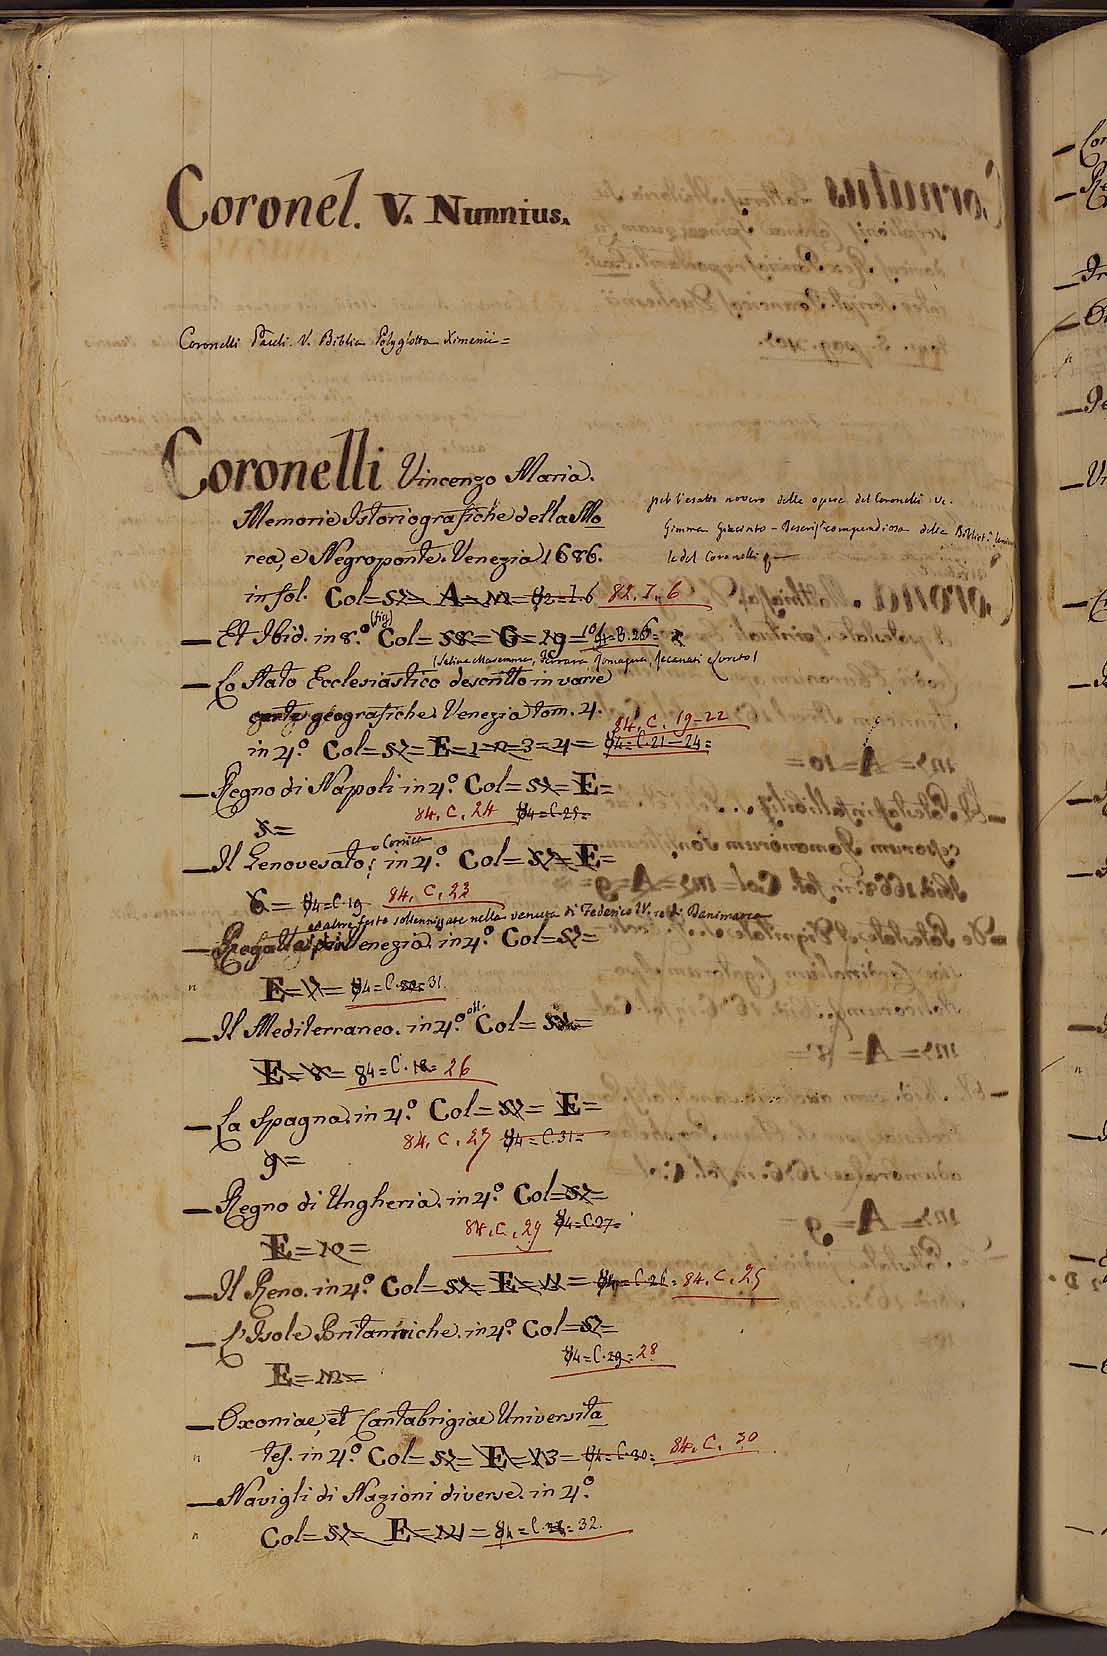 Coronel. V. Nunnius.
Coronelli Pauli. V. Biblia Polyglotta Ximenii =
Coronelli Vincenzo Maria.
Memorie Istoriografiche della Mo
rea, e Negroponte. Venezia 1686.
in fol. Col= 82. I. 6
per l'esatto novero delle opere del Coronelli V.
Gimma Giacinto - compendiosa delle
le del Coronelli
— Et Ibid. in 8.° (fig) Col= 58= G= 19=
(Latina Maremme, Ferrara Romagna, Recanati e Loreto)
— Lo Stato Ecclesiastico descritto in varie
carte geografiche. Venezia tom. 4.
84. C. 19=22
in 4.° Col= 57= E=1=2=3=4= 84=C.21-24=
— Regno di Napoli in 4.° Col= 57= E=
5= 84. C. 24 84=C.25=
— Il Genovesato, e Corsica in 4.° Col= 57= E=
6= 84=C.19 84. C. 23
ed altre feste sollennizzate nella venuta di Federico IV. re di Danimarca
— Regatta Venezia. in 4.° Col= 57=
n E= 7= 84= C. 31.
— Il Mediterraneo. in 4.° ott. Col= 57=
E= 8= 84= C. 18= 26
— La Spagna. in 4.° Col= 57= E=
9= 84. C. 27 84= C.31=
— Regno di Ungheria. in 4.° Col= 57=
E= 10= 84. C. 29 84=C.27=
— Il Reno. in 4.° Col= 57= E= 11= 84= C.26= 84. C. 25
— L'Isole Britanniche. in 4.° Col= 57=
E= 12= 84= C.29= 28
— Oxoniae, et Cantabrigiae Universita
n tes. in 4.° Col= 57= E= 13= 84= C.30= 84. C. 30
— Navigli di Nazioni diverse. in 4.°
n Col= 57= E= 14= 84= C. 32.